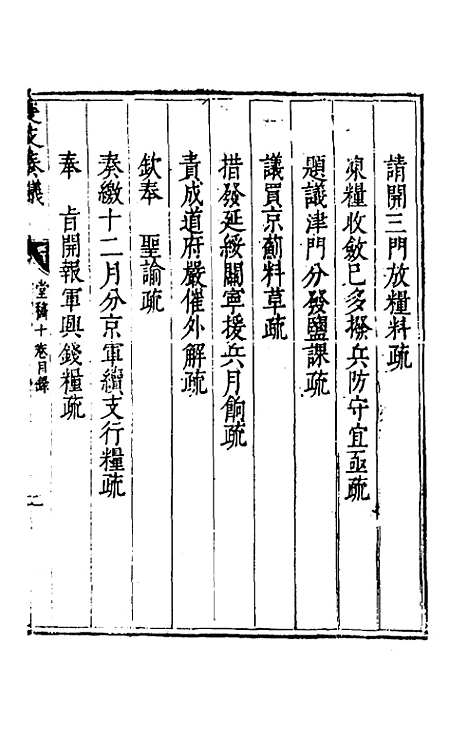 請開三門放糧料疏
凍糧收斂已多撥兵防守宜亟疏
題議津門分發鹽課疏
議買京薊料草疏
措發延綏關寧援兵月餉疏
責成道府嚴催外解疏
欽奉　聖諭疏
奏繳十二月分京軍續支行糧疏
奉　旨開報軍興錢糧疏
度支奏議
堂稿十卷目錄
二